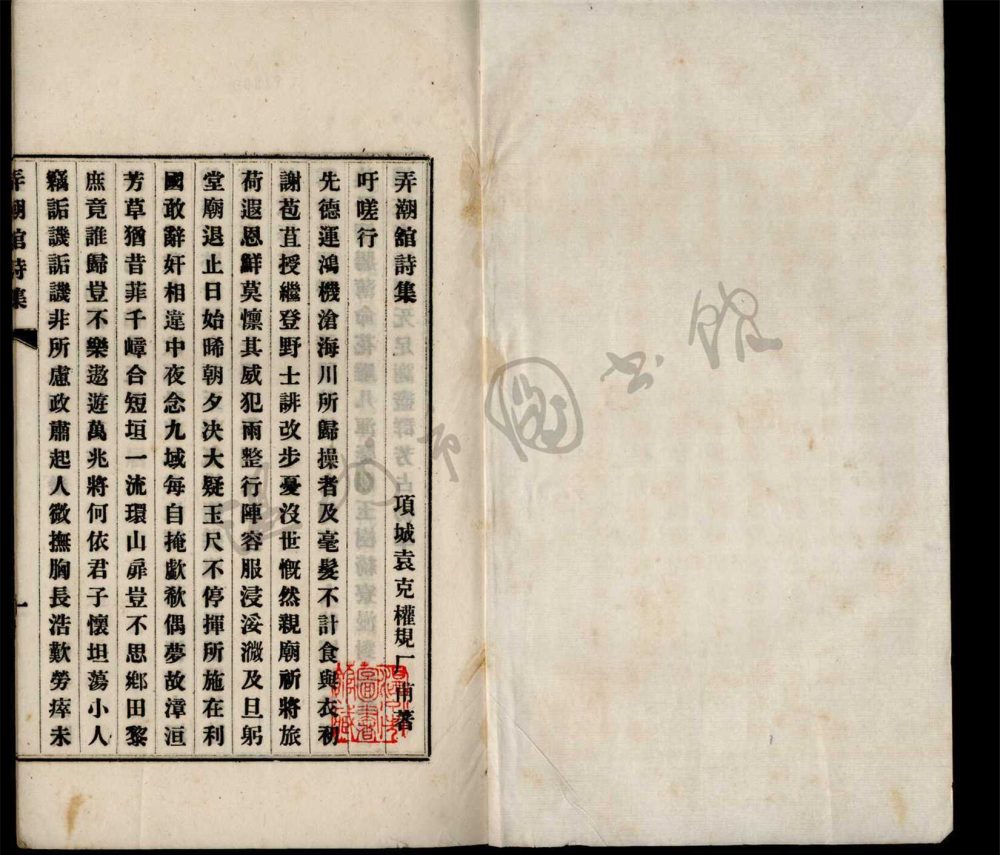 弄潮館詩集
項城袁克權規厂甫著
吁嗟行
先德運鴻機滄海川所歸操者及毫髮不計食與衣初
謝苞苴授繼登野士誹改步憂沒世慨然親廟祈將旅
荷遐恩鮮莫懍其威犯雨整行陣容服浸妥溦及旦躬
堂廟退止日始晞朝夕决大疑玉尺不停揮所施在利
國敢辭奸相違中夜念九域每自掩歔欷偶夢故漳洹
芳草猶昔菲千嶂合短垣一流環山扉豈不思鄉田黎
庶竟誰歸豈不樂遨遊萬兆將何依君子懷坦蕩小人
竊詬譏詬譏非所慮政肅起人微撫胸長浩歎勞瘁未
弄潮館詩集
一
圖書館